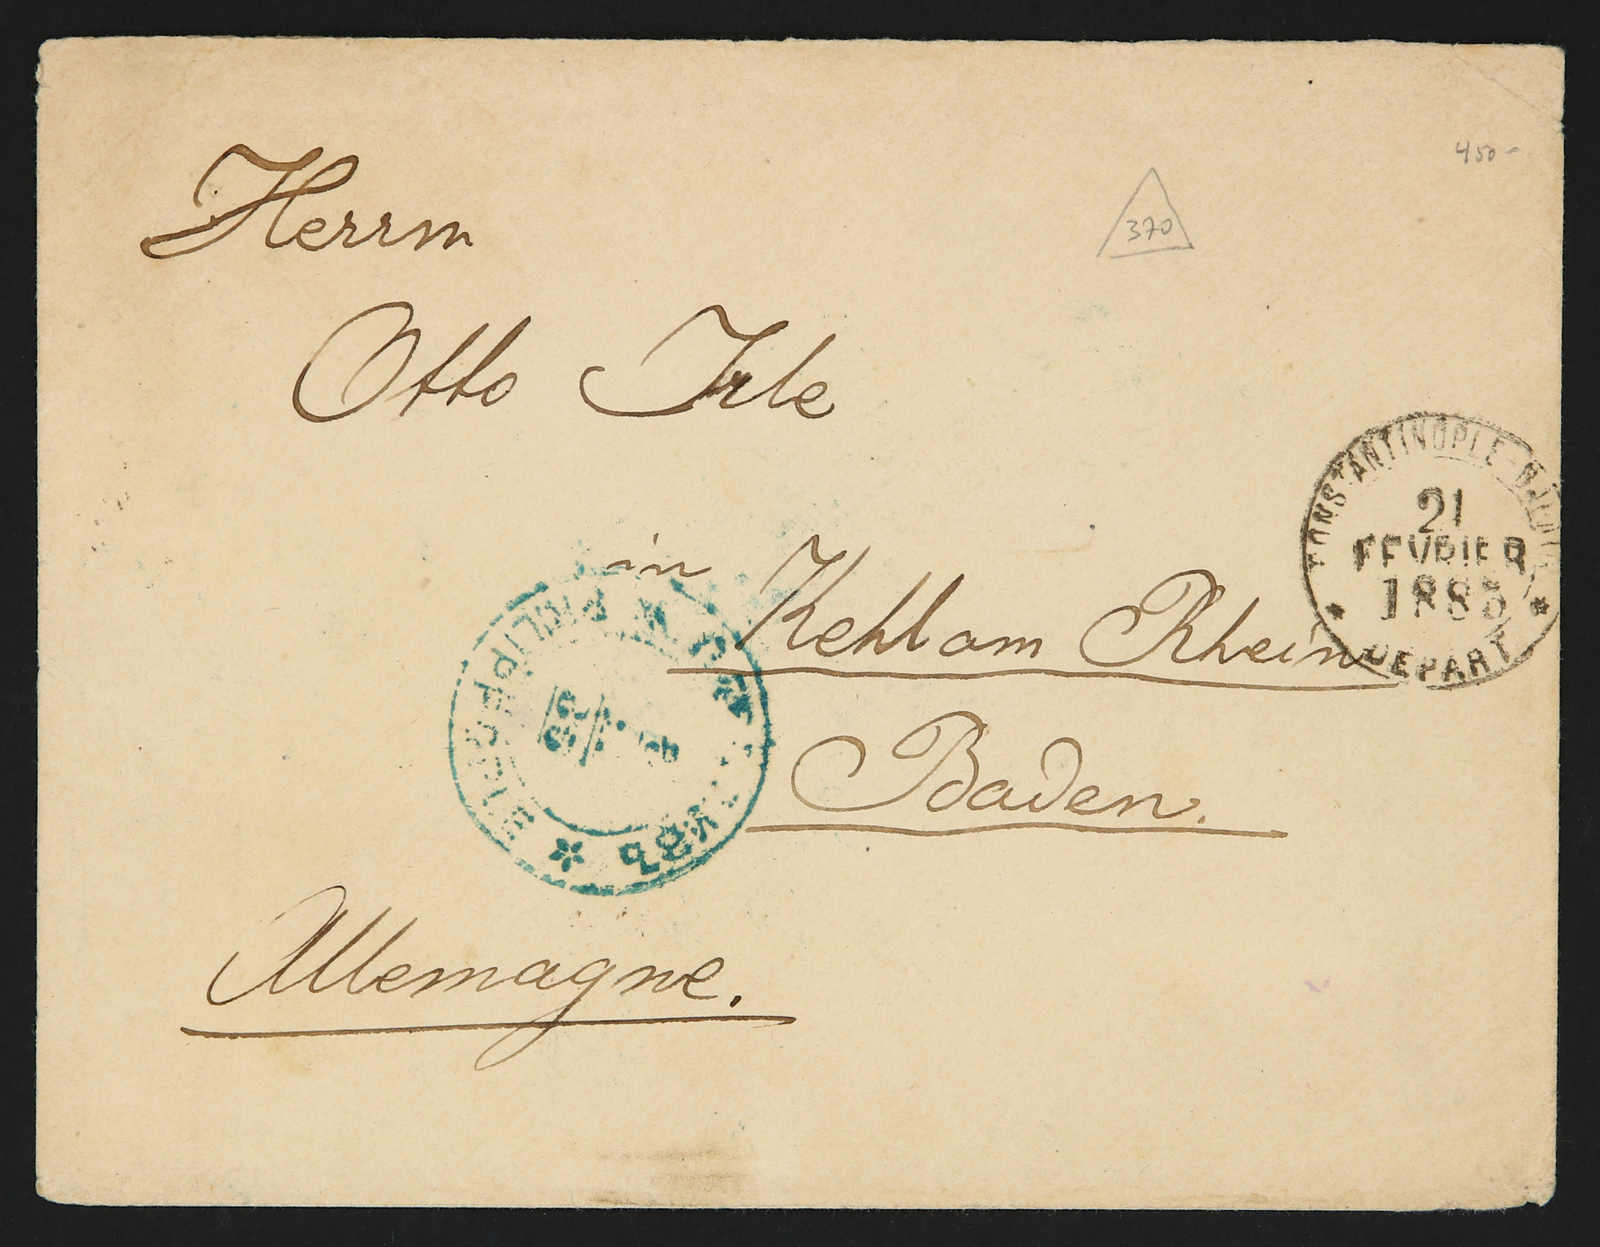 450-
370
Herrn
Otto Irle
in Kehl am Rhein
Baden.
Allemagne.
CONSTANTINOPLE
21
FEVRIER
1885
DEPART
PHILIPPOPOLE